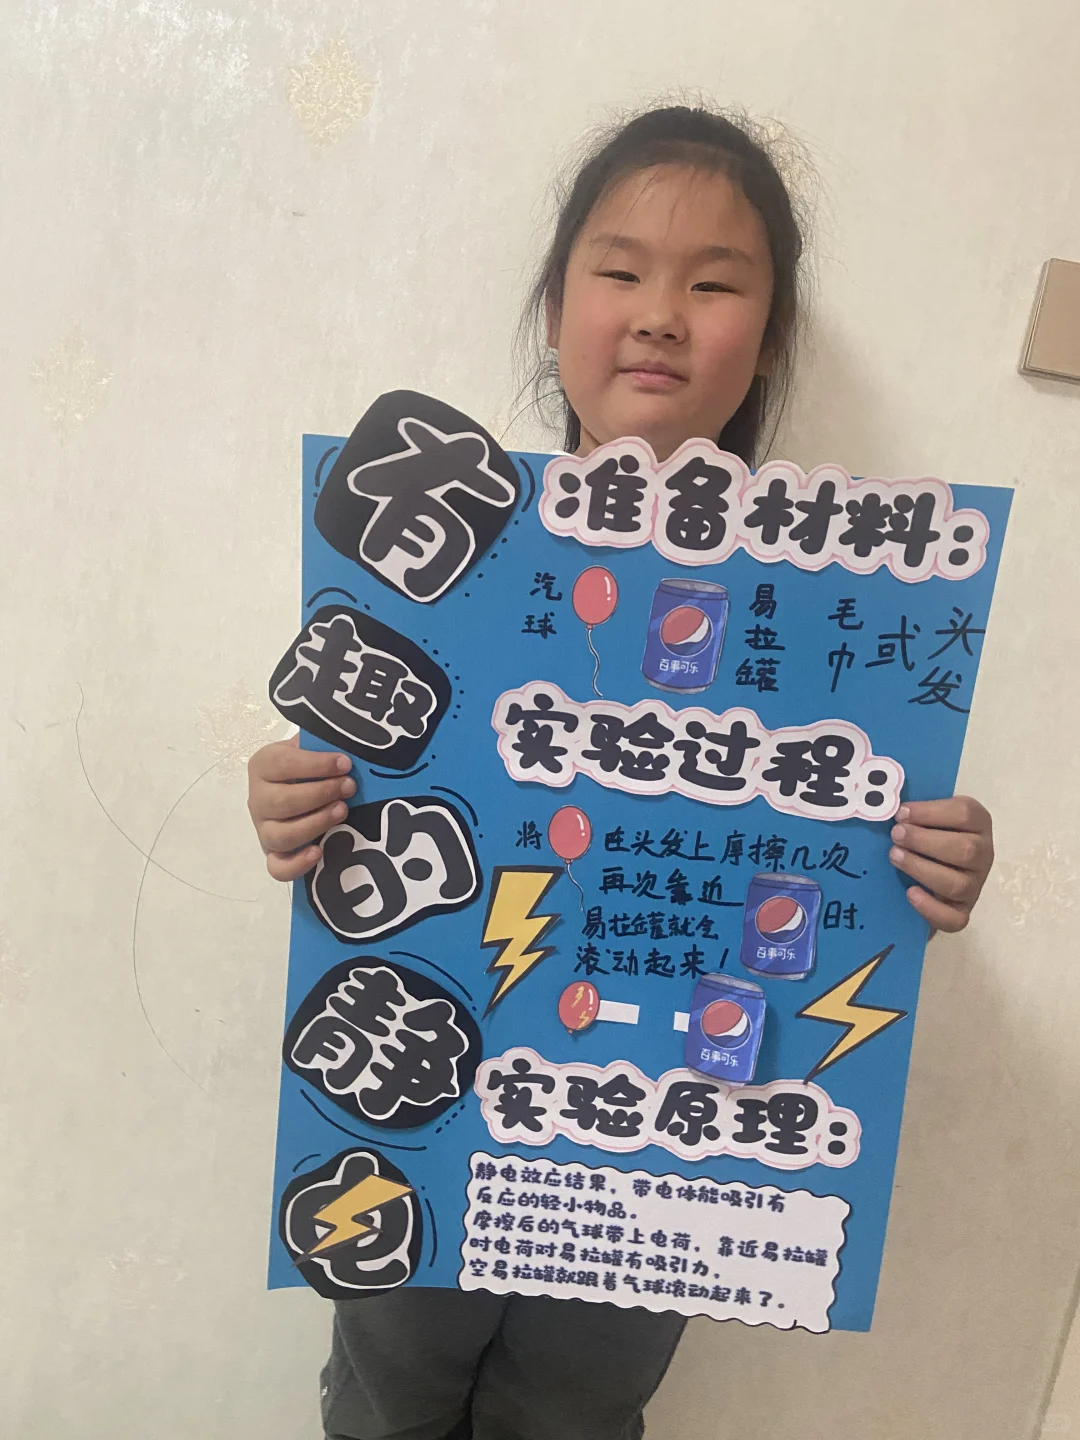 有趣的静电
准备材料:
汽球
百事可乐
易拉罐
毛巾或头发
实验过程:
将
在头发上摩擦几次.
再次靠近
百事可乐
时.
易拉罐就会
滚动起来!
百事可乐
实验原理:
静电效应结果，带电体能吸引有
反应的轻小物品。
摩擦后的气球带上电荷，靠近易拉罐
时电荷对易拉罐有吸引力，
空易拉罐就跟着气球滚动起来了。